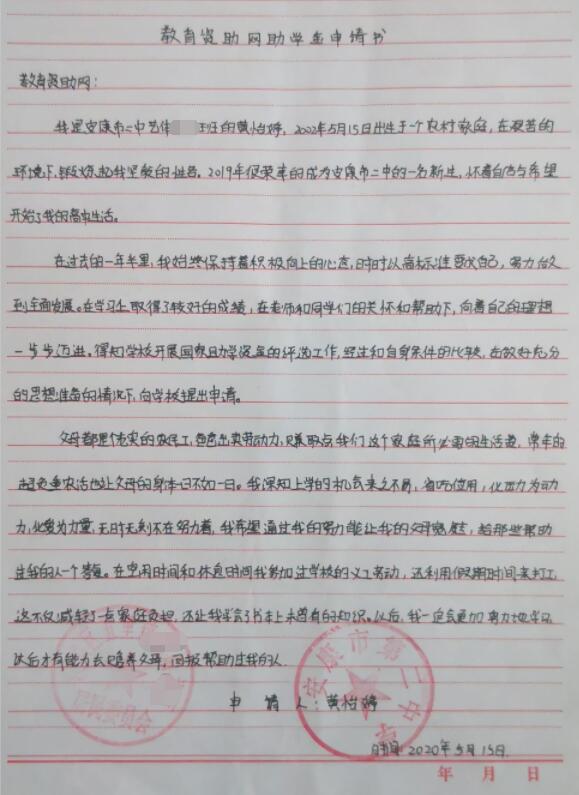 教育资助网助学金申请书
教育资助网：
我是安康市二中艺体班的黄怡婷，2002年5月15日出生于一个农村家庭，在艰苦的
环境下，锻炼起我坚毅的性格。2019年很荣幸的成为安康市二中的一名新生，怀着自信与希望
开始了我的高中生活。
在过去的一年半里，我始终保持着积极向上的心态，时时以高标准要求自己，努力做
到全面发展。在学习上取得了较好的成绩，在老师和同学们的关怀和帮助下，向着自己的理想
一步步迈进。得知学校开展国家助学资金的评选工作，经过和自身条件的比较，在做好充分
的思想准备的情况下，向学校提出申请。
父母都是个老实的农民工，靠着出卖劳动力，赚取点我们这个家庭所必需的生活费，常年的
超负重农活也让父母的身体一日不如一日。我深知上学的机会来之不易，省吃俭用，化压力为动
力，化爱为力量，无时无刻不在努力着，我希望通过我的努力能让我的父母宽慰，给那些帮助
过我的人一个答复。在空闲时间和休息时间我参加过学校的义工劳动，还利用假期时间来打工，
这不仅减轻了一点家庭负担，还让我学会了书本上未曾有的知识。以后，我一定会更加努力地学习，
以后才有能力去赡养父母，回报帮助过我的人。
申请人：黄怡婷
时间：2020年5月15日.
年 月 日
安康市第二中学
居民委员会